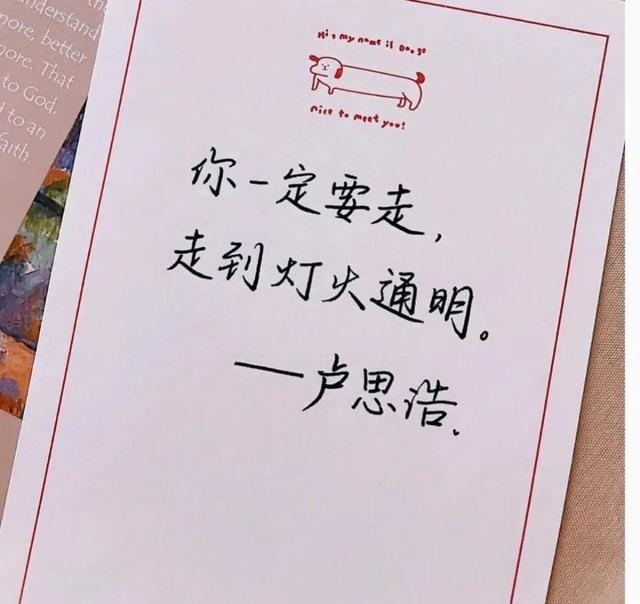 understand
more, better
more. That
to God,
d to an
faith.
Hi, my name is Dooge
nice to meet you!
你一定要走，
走到灯火通明。
——卢思浩.